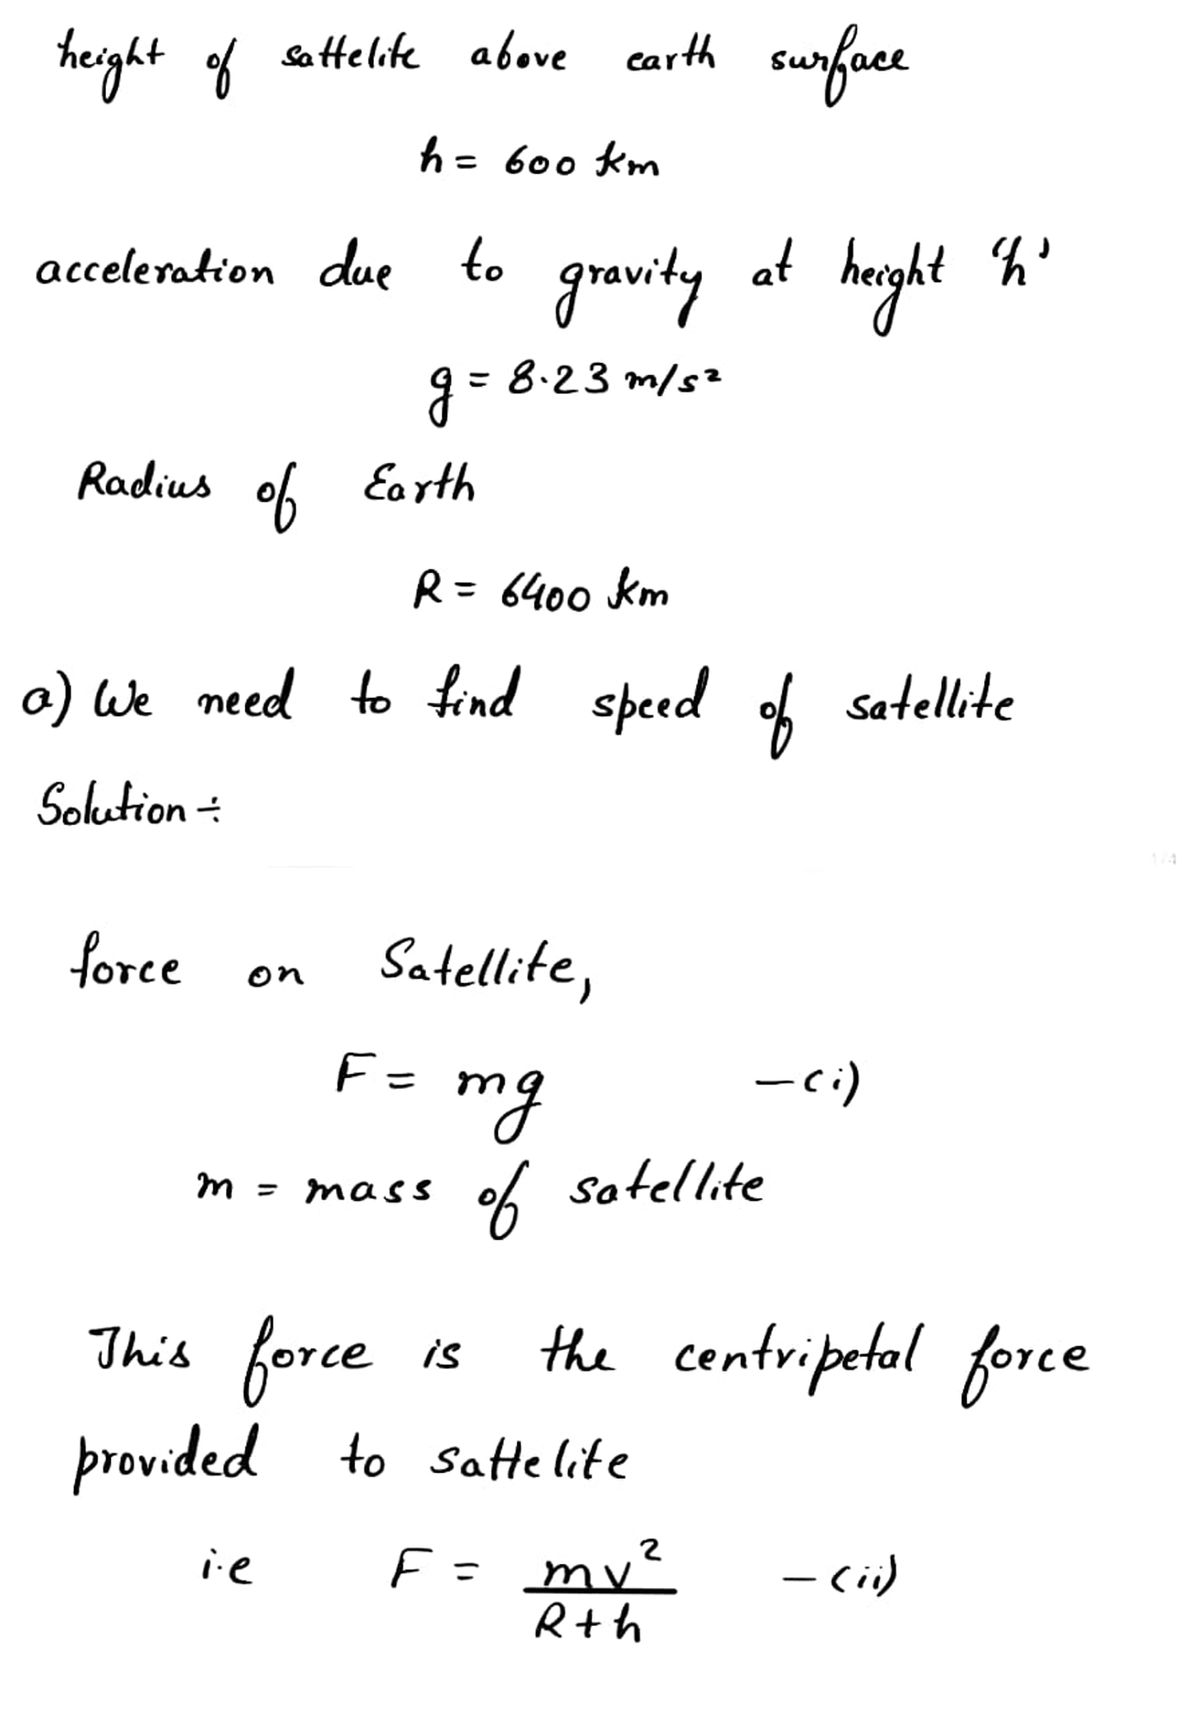 height of sattelite above earth surface
h = 600 km
acceleration due to gravity at height 'h'
g = 8.23 m/s²
Radius of Earth
R = 6400 km
a) We need to find speed of satellite
Solution ÷
force on Satellite,
F = mg -(i)
m = mass of satellite
This force is the centripetal force
provided to sattelite
i.e F = mv²/R+h -(ii)